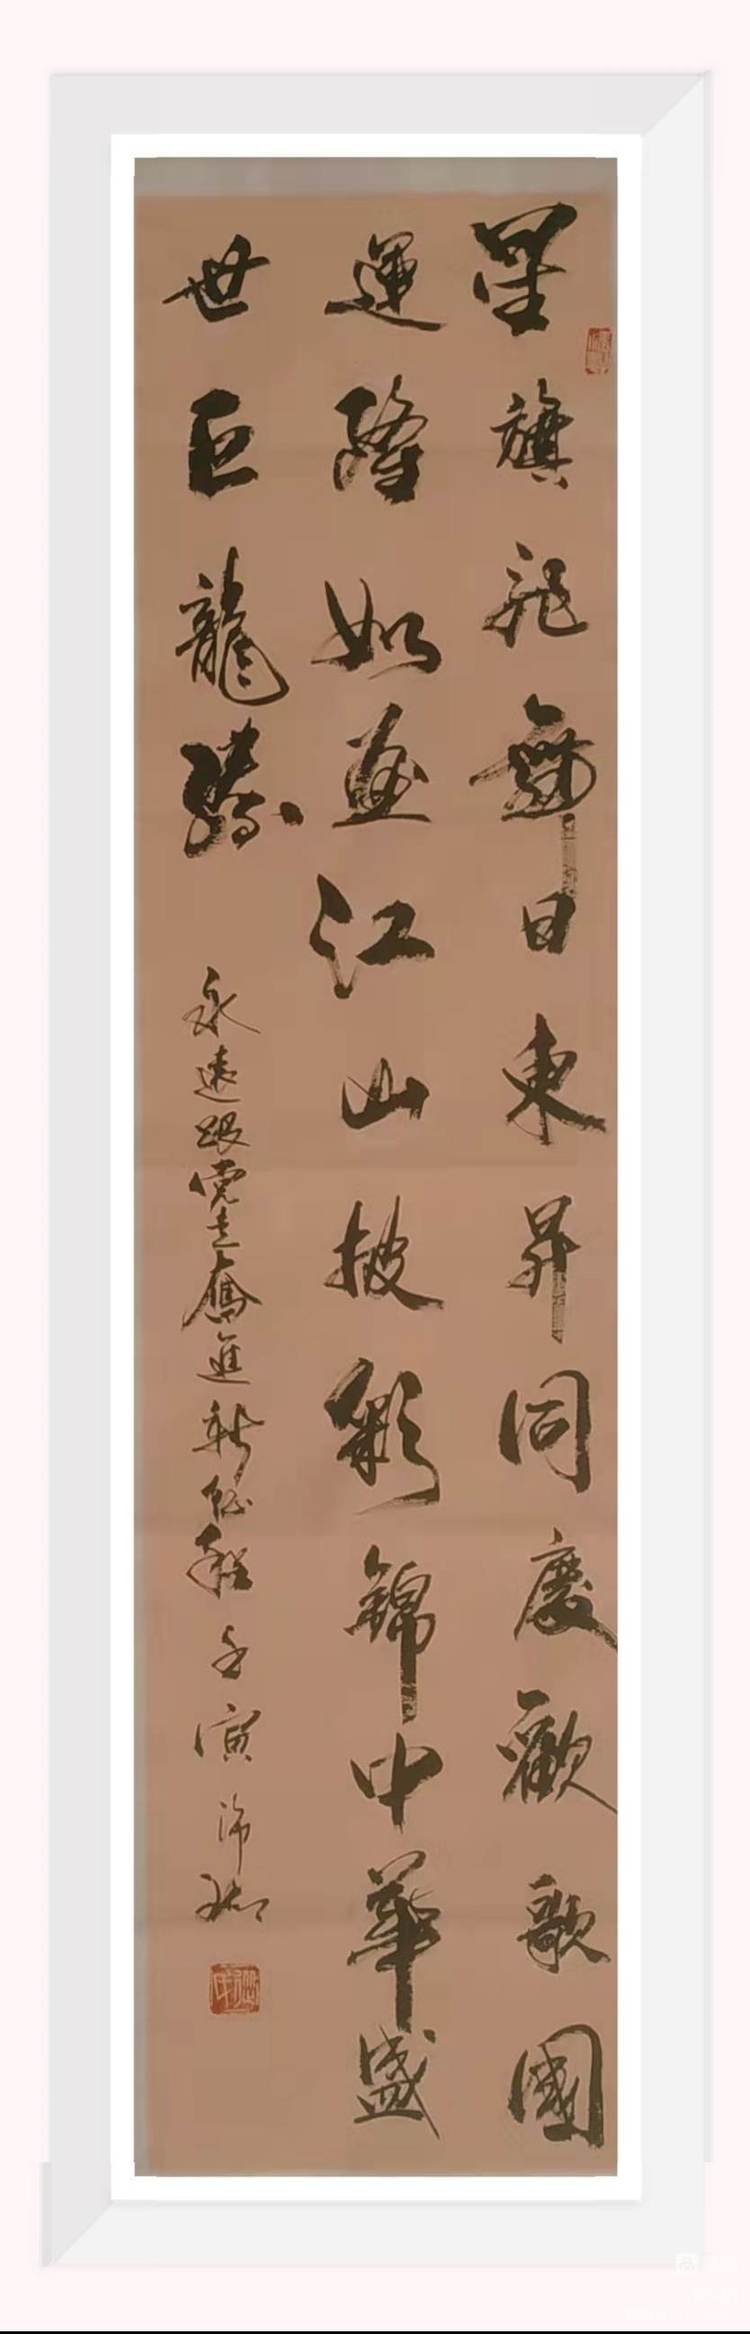 星旗飛舞日東昇同慶歡歌國
運隆如畫江山披彩錦中華盛
世巨龍騰
永遠跟党走奮進新征程壬寅